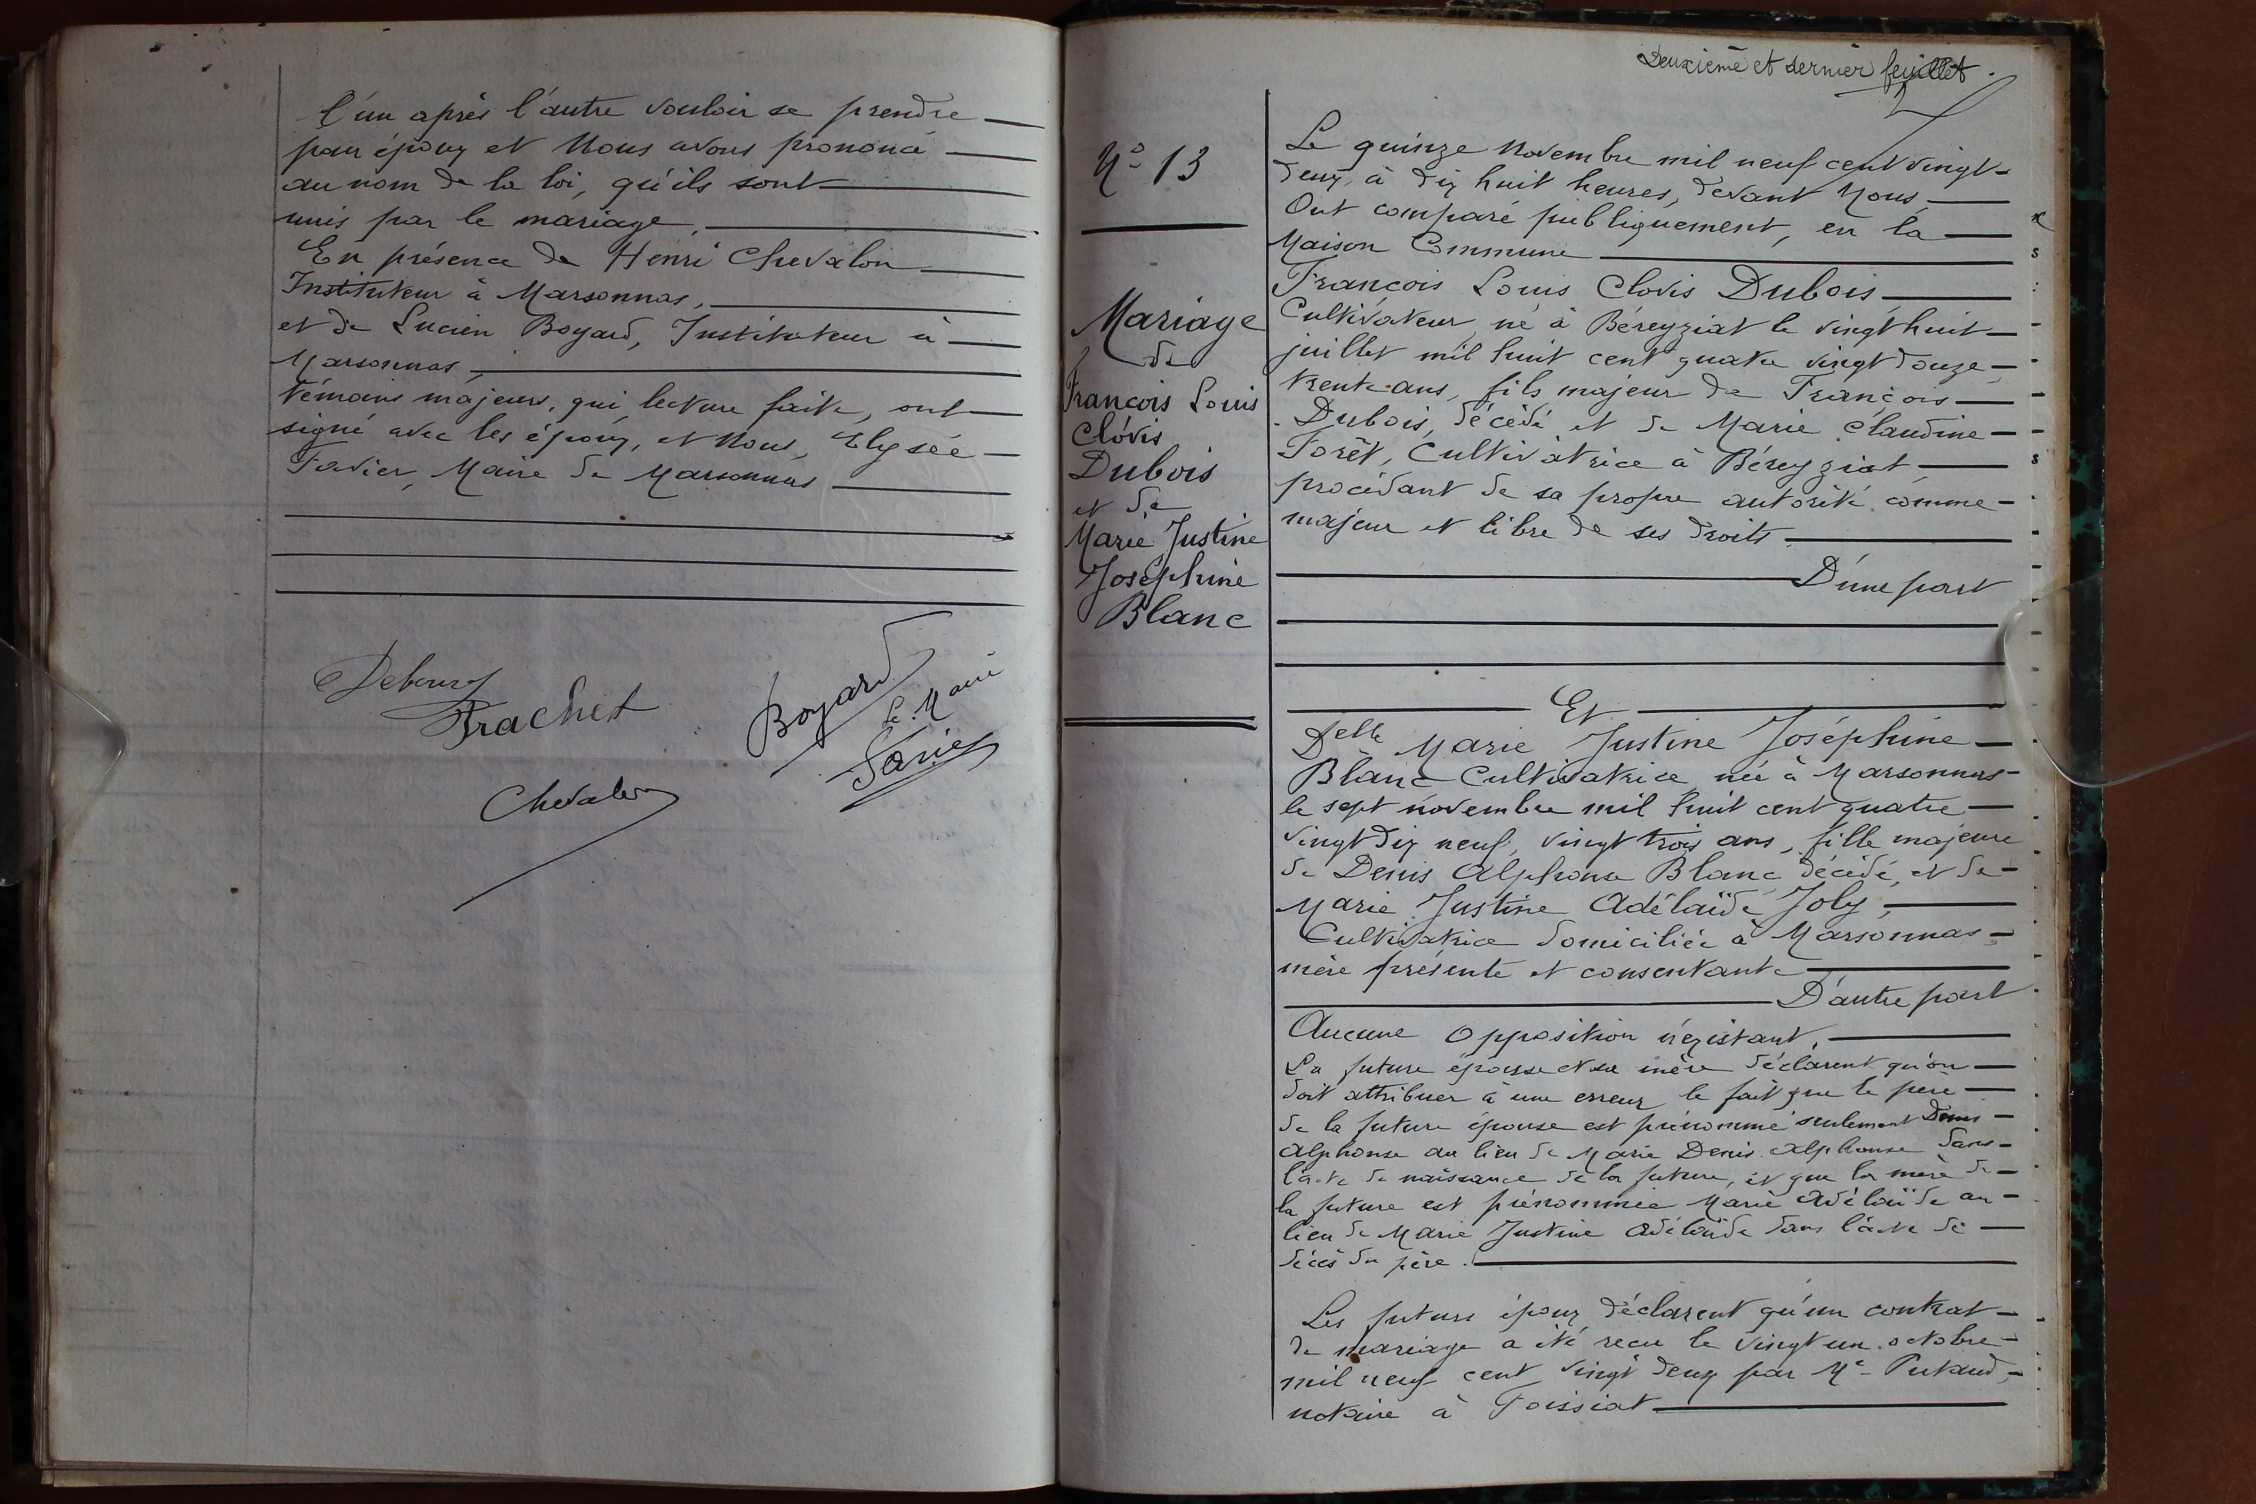 l'un après l'autre vouloir se prendre
pour époux et Nous avons prononcé
au nom de la loi, qu'ils sont
unis par le mariage.
En présence de Henri Chevalon
Instituteur à Marsonnas,
et de Lucien Boyard, Instituteur à
Marsonnas,
témoins majeurs, qui, lecture faite, ont
signé avec les époux, et Nous, Elysée
Favier, Maire de Marsonnas
Debourg
Trachet
Boyard
Le Maire
Favier
Chevalon
Deuxième et dernier feuillet.
N° 13
Mariage
de
François Louis
Clovis
Dubois
et de
Marie Justine
Joséphine
Blanc
Le quinze Novembre mil neuf cent vingt
deux, à dix huit heures, devant Nous,
Ont comparé publiquement, en la
Maison Commune
François Louis Clovis Dubois,
Cultivateur né à Béreyziat le vingt huit
juillet mil huit cent quatre vingt douze,
trente ans, fils majeur de François
Dubois, décédé et de Marie Claudine
Forêt, Cultivatrice à Béreyziat
procédant de sa propre autorité comme
majeur et libre de ses droits
D'une part
Et
Delle Marie Justine Joséphine
Blanc Cultivatrice née à Marsonnas
le sept novembre mil huit cent quatre
vingt dix neuf, vingt trois ans, fille majeure
de Denis Alphonse Blanc décédé, et de
Marie Justine Adélaïde Joly,
Cultivatrice domiciliée à Marsonnas
mère présente et consentante
D'autre part
Aucune opposition n'existant.
La future épouse et sa mère déclarent qu'on
doit attribuer à une erreur le fait que le père
de la future épouse est prénommé seulement Denis
Alphonse au lieu de Marie Denis Alphonse dans
l'acte de naissance de la future, et que la mère de
la future est prénommée Marie Adélaïde au
lieu de Marie Justine Adélaïde dans l'acte de
décès du père.
Les futurs époux déclarent qu'un contrat
de mariage a été reçu le vingt un octobre
mil neuf cent vingt deux par Me Putaud,
notaire à Foissiat